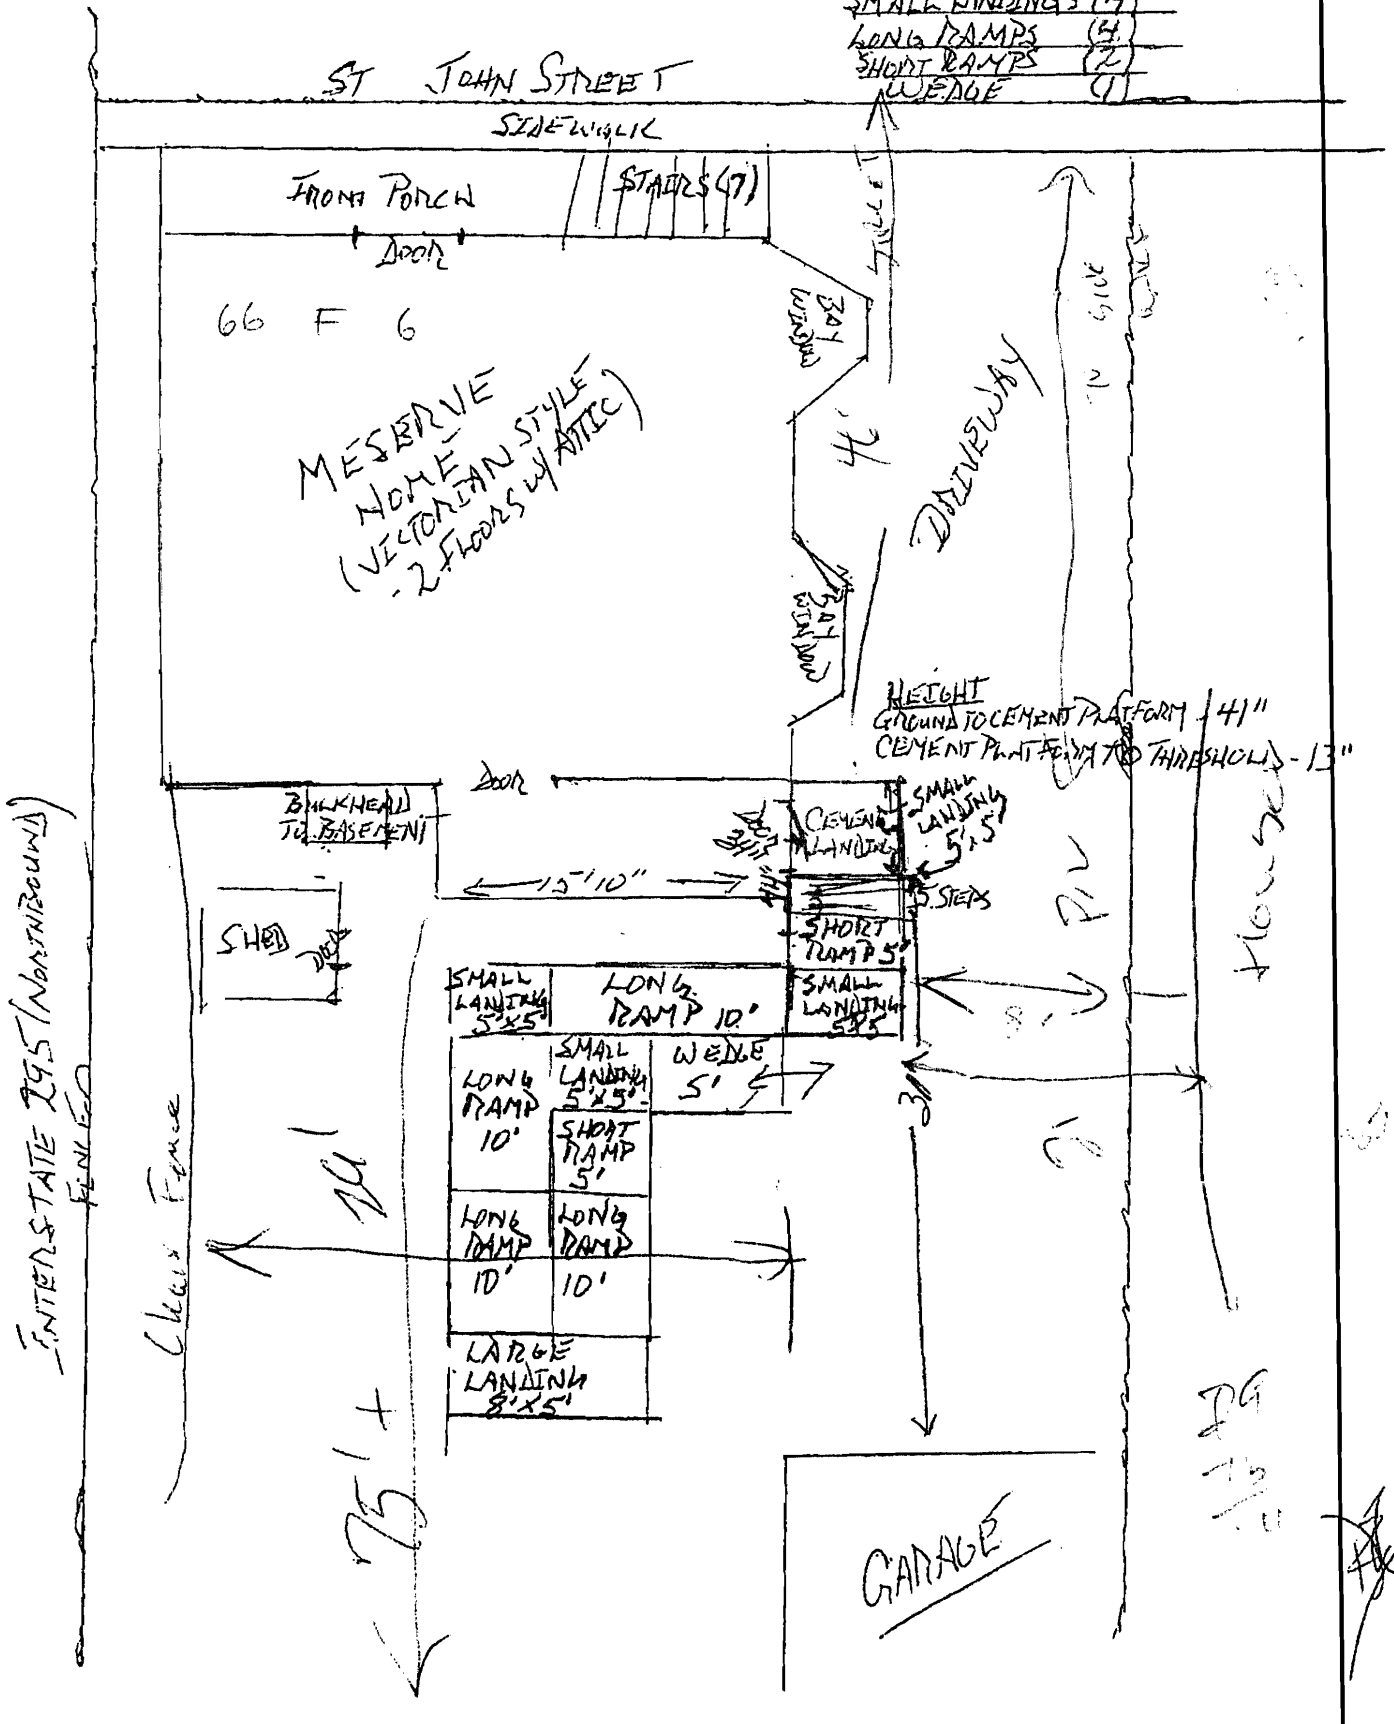 SMALL LANDINGS
LONG RAMPS (4)
SHORT RAMPS (2)
WEDGE (1)
ST JOHN STREET
SIDEWALK
FRONT PORCH
STAIRS (7)
DOOR
STREET
66 F 6
BAY
WINDOW
MESERVE
HOME -
(VICTORIAN STYLE
2 FLOORS W/ATTIC)
46'
DRIVEWAY
BAY
WINDOW
HEIGHT
GROUND TO CEMENT PLATFORM - 41"
CEMENT PLATFORM TO THRESHOLD - 13"
DOOR
BULKHEAD
TO BASEMENT
CEMENT
LANDING
SMALL
LANDING
5'x5'
15'10"
5 STEPS
SHED
DOOR
SHORT
RAMP 5'
SMALL
LANDING
5'x5'
LONG
RAMP 10'
SMALL
LANDING
5x5
8'
House
LONG
RAMP
10'
SMALL
LANDING
5'x5'
WEDGE
5'
SHORT
RAMP
5'
LONG
RAMP
10'
LONG
RAMP
10'
LARGE
LANDING
8'x5'
INTERSTATE 295 (NORTHBOUND)
Chain Fence
75'+
GARAGE